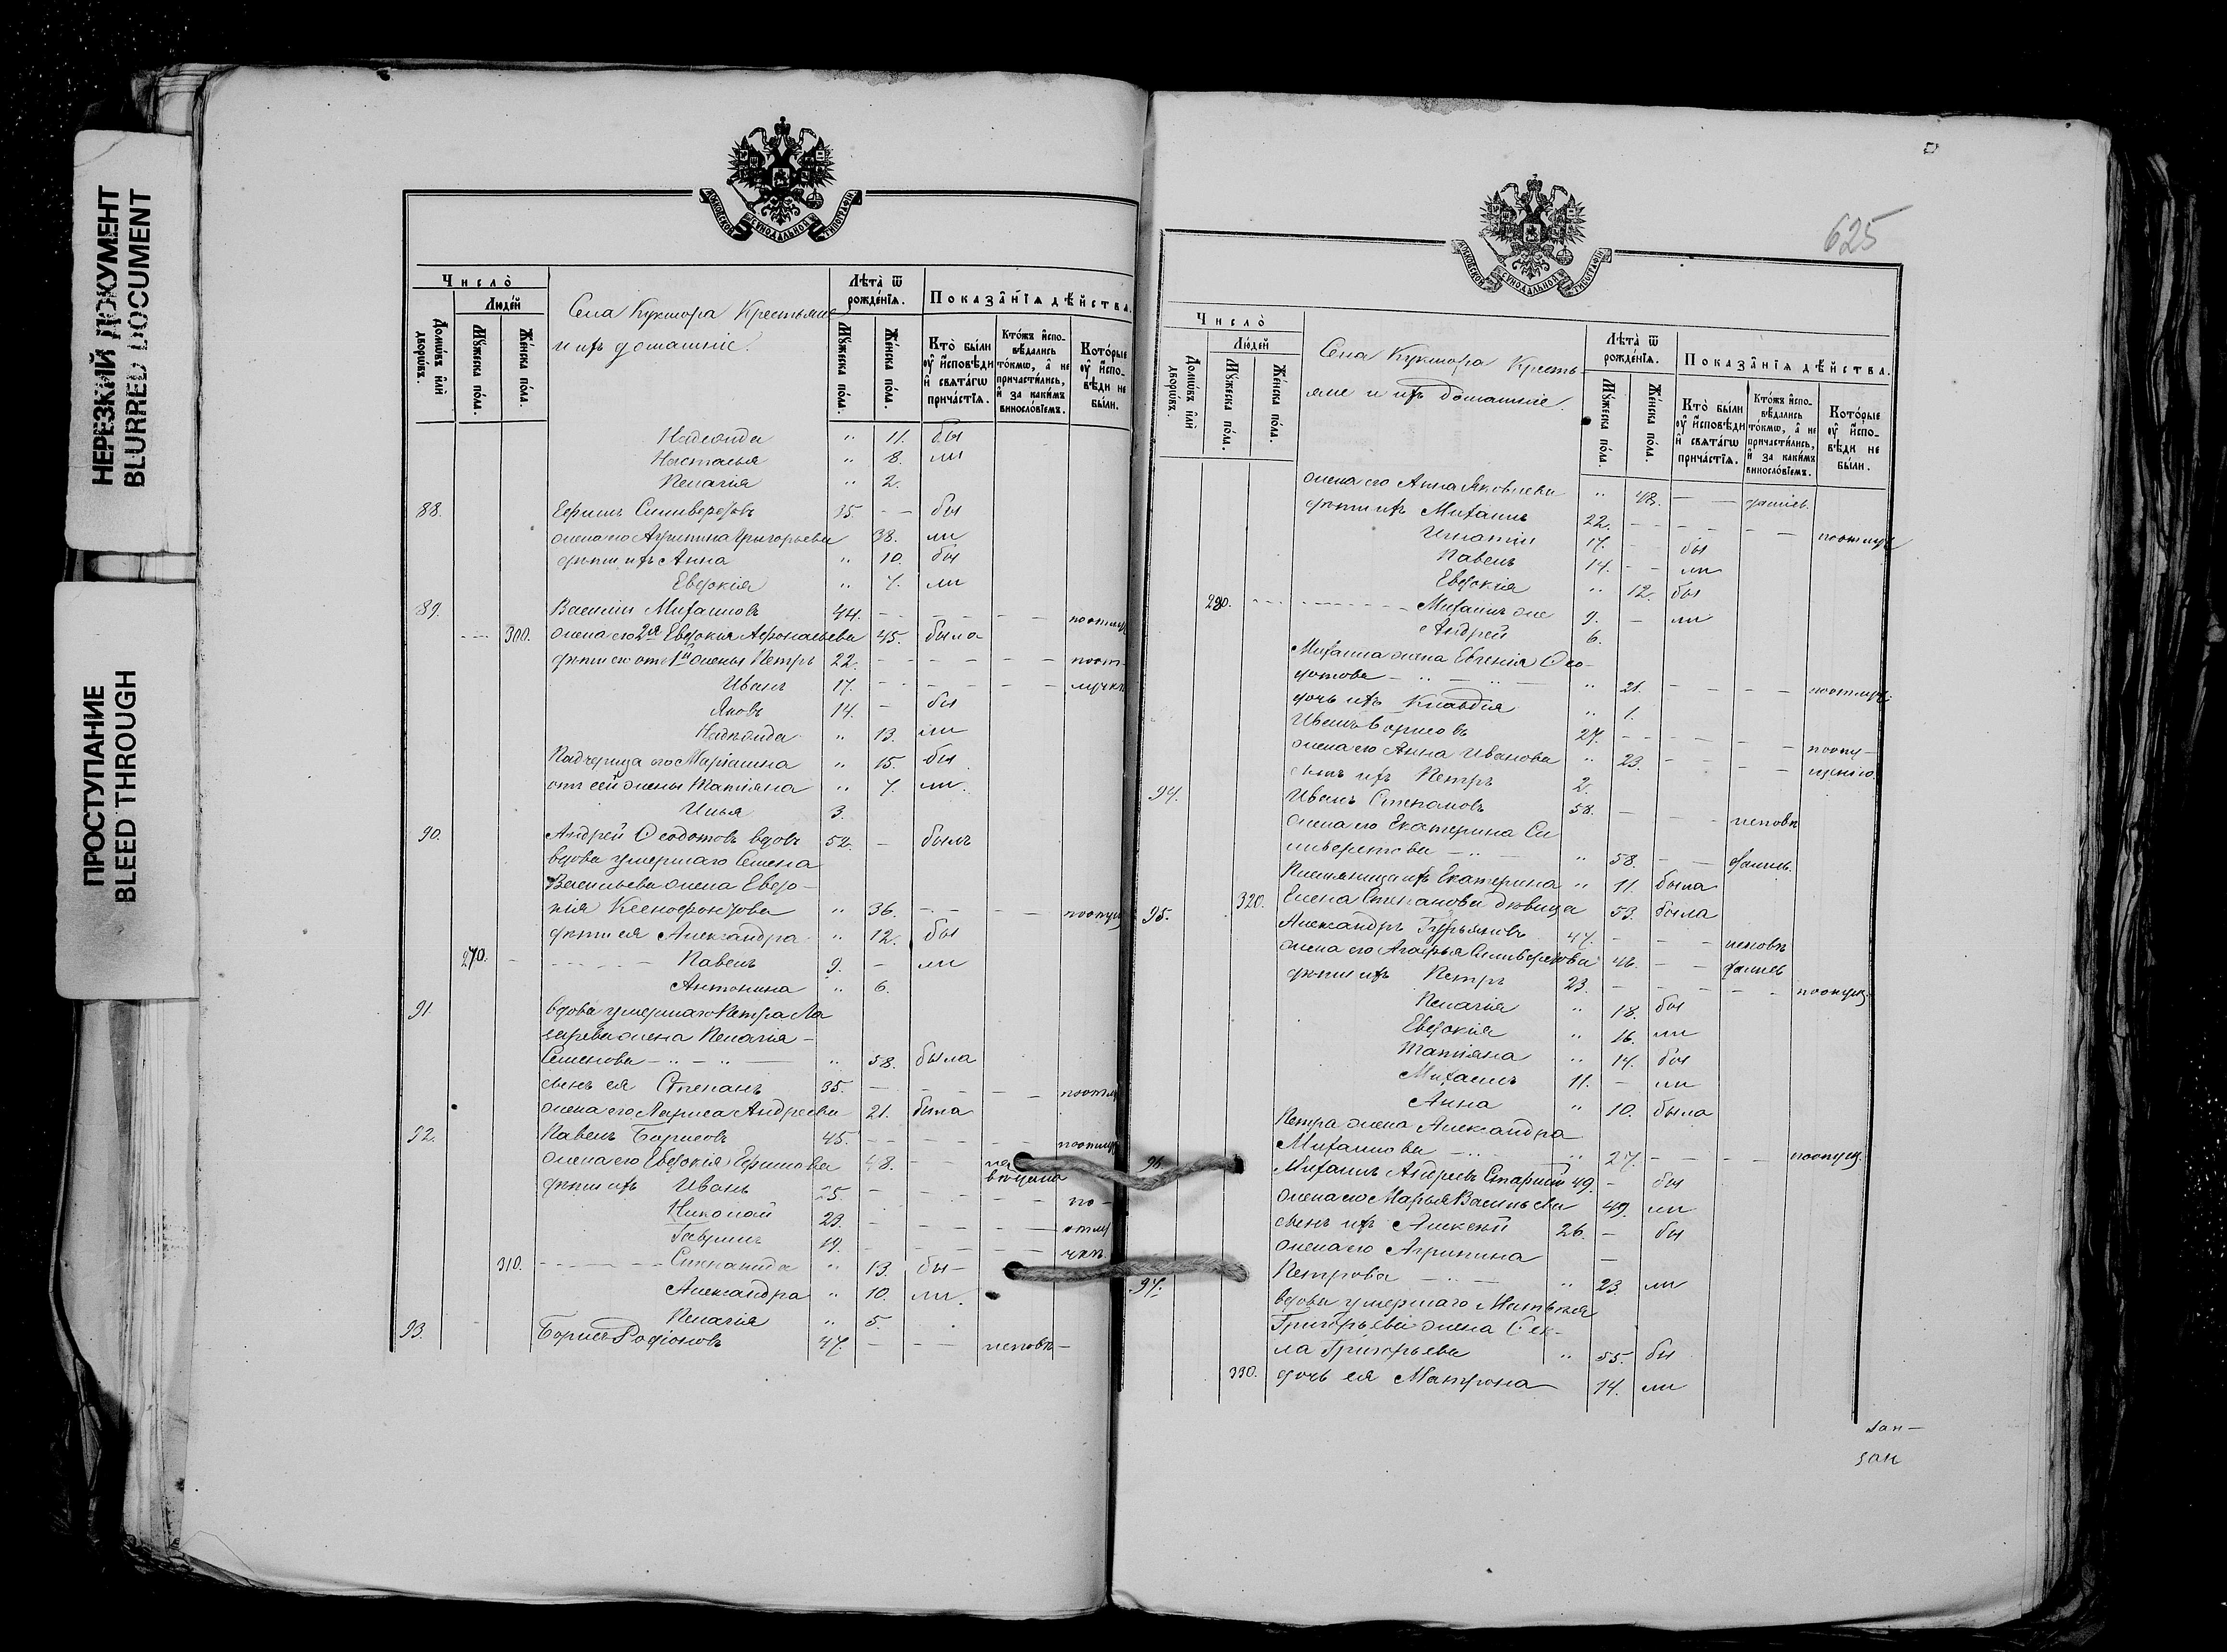 НЕРЕЗКИЙ ДОКУМЕНТ
BLURRED DOCUMENT
ПРОСТУПАНИЕ
BLEED THROUGH
МОСКОВСКОЙ СѴНОДАЛЬНОЙ ТИПОГРАФІИ
Число̀
Люде́й
Домѡ́въ и҆лѝ дворѡ́въ.
Мꙋ́жеска по́ла.
Же́нска по́ла.
Села Кукмора Крестьяне
и ихъ домашніе.
Лѣ́та ѿ рожде́нїѧ.
Мꙋ́жеска по́ла.
Же́нска по́ла.
Показа̑нїѧ дѣ́йства.
Кто̀ бы́ли оу҆ и҆сповѣ́ди и҆ свѧта́гѡ прича́стїѧ.
Кто́жъ и҆спо­вѣ́дались то́кмѡ, а҆ не причасти́лись, и҆ за каки́мъ винослові́емъ.
Кото́рые оу҆ и҆спо­вѣ́ди не бы́ли.
Надежда " 11. бы
Наталья " 8. ли
Пелагія " 2.
88. Ефимъ Сильверстовъ 35 - - бы
жена его Агрипина Григорьева 38. ли
дѣти ихъ Анна " 10. бы
Евдокія " 7. ли
89. Василій Михаиловъ 44. - - - - - поотлуч
300. жена его 2я Евдокія Афонасьева 45. была
дѣти его отъ 1й жены Петръ 22. - - - - - поот-
Иванъ 17. - - - - - лучкѣ
Яковъ 14. - бы
Надежда " 13. ли
Падчерица его Маріамна " 15. бы
отъ сей жены Татіяна " 7. ли.
Илья 3.
90. Андрей Ѳеодотовъ вдовъ 52. - былъ
вдова умершаго Семена
Васильева жена Евдо-
кія Ксенофонтова " 36. - - - - поопущ
дѣти ея Александра " 12. бы
270. - - - - - Павелъ 9. - ли
Антонина " 6.
91. вдова умершаго Петра Ла
зарева жена Пелагія -
Семенова - " - " - " 58. была
сынъ ея Степанъ 35. - - - - поотл
жена его Лариса Андреева 21. была
92. Павелъ Борисовъ 45. - - - - - поотлуч
жена его Евдокія Ефимова 48. - -
дѣти ихъ Иванъ 25. - - - - - по-
Николай 23. - - - - - отлу
Гавриилъ 19. - - - - - чкѣ.
310. - - - - - Степанида " 13. бы-
Александра " 10. ли.
Пелагія " 5.
93. Борисъ Родіоновъ 47. - - - неповѣ-
625
МОСКОВСКОЙ СѴНОДАЛЬНОЙ ТИПОГРАФІИ
Число̀
Люде́й
Домѡ́въ и҆лѝ дворѡ́въ.
Мꙋ́жеска по́ла.
Же́нска по́ла.
Села Кукмора Кресть-
яне и ихъ домашніе.
Лѣ́та ѿ рожде́нїѧ.
Мꙋ́жеска по́ла.
Же́нска по́ла.
Показа̑нїѧ дѣ́йства.
Кто̀ бы́ли оу҆ и҆сповѣ́ди и҆ свѧта́гѡ прича́стїѧ.
Кто́жъ и҆спо­вѣ́дались то́кмѡ, а҆ не причасти́лись, и҆ за каки́мъ винослові́емъ.
Кото́рые оу҆ и҆спо­вѣ́ди не бы́ли.
жена его Анна Яковлева " 48. - -
дѣти ихъ Михаилъ 22. - - - - - поотлуч
Игнатій 17. - - бы
Павелъ 14. - - ли
Евдокія " 12. бы
280. - - - - - Михаилъ же 9. - ли
Андрей 6.
Михаила жена Евгенія Ѳео-
дотова - " - " - " 21. - - - - поотлуч.
дочь ихъ Клавдія " 1.
Иванъ Борисовъ 27. - - - - - поопу-
жена его Анна Иванова " 23. - - - - щенію.
сынъ ихъ Петръ 2.
94. Иванъ Степановъ 58. - - - неповѣ
жена его Екатерина Си
льверстова - " - " 58. - -
Племянница ихъ Екатерина " 11. была
95. 320. Елена Степанова дѣвица 53. была
Александръ Гурьяновъ 47. - - - неповѣ
жена его Агафья Сильверстова 46. - -
дѣти ихъ Петръ 23. - - - - - поопущ.
Пелагія " 18. бы
Евдокія " 16. ли
Татіяна " 14. бы
Михаилъ 11. - ли
Анна " 10. была
Петра жена Александра
Михаилова - " - " 27. - - - - поопущ.
96. Михаилъ Андреевъ Старшій 49. - бы
жена его Марья Васильева 49. ли
сынъ ихъ Алексѣй 26. - бы
жена его Агрипина -
Петрова - " - " 23. ли
97. вдова умершаго Матвѣя
Григорьева жена Ѳек-
ла Григорьева " 55. бы
330. дочь ея Матрона 14. ли